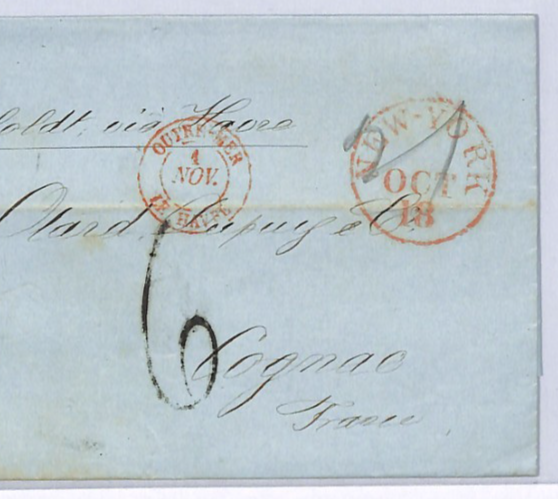 oldt, via Havre
OUTRE-MER
1
NOV.
LE HAVRE
NEW-YORK
OCT
18
Otard, Dupuy & Co.
6
Cognac
France